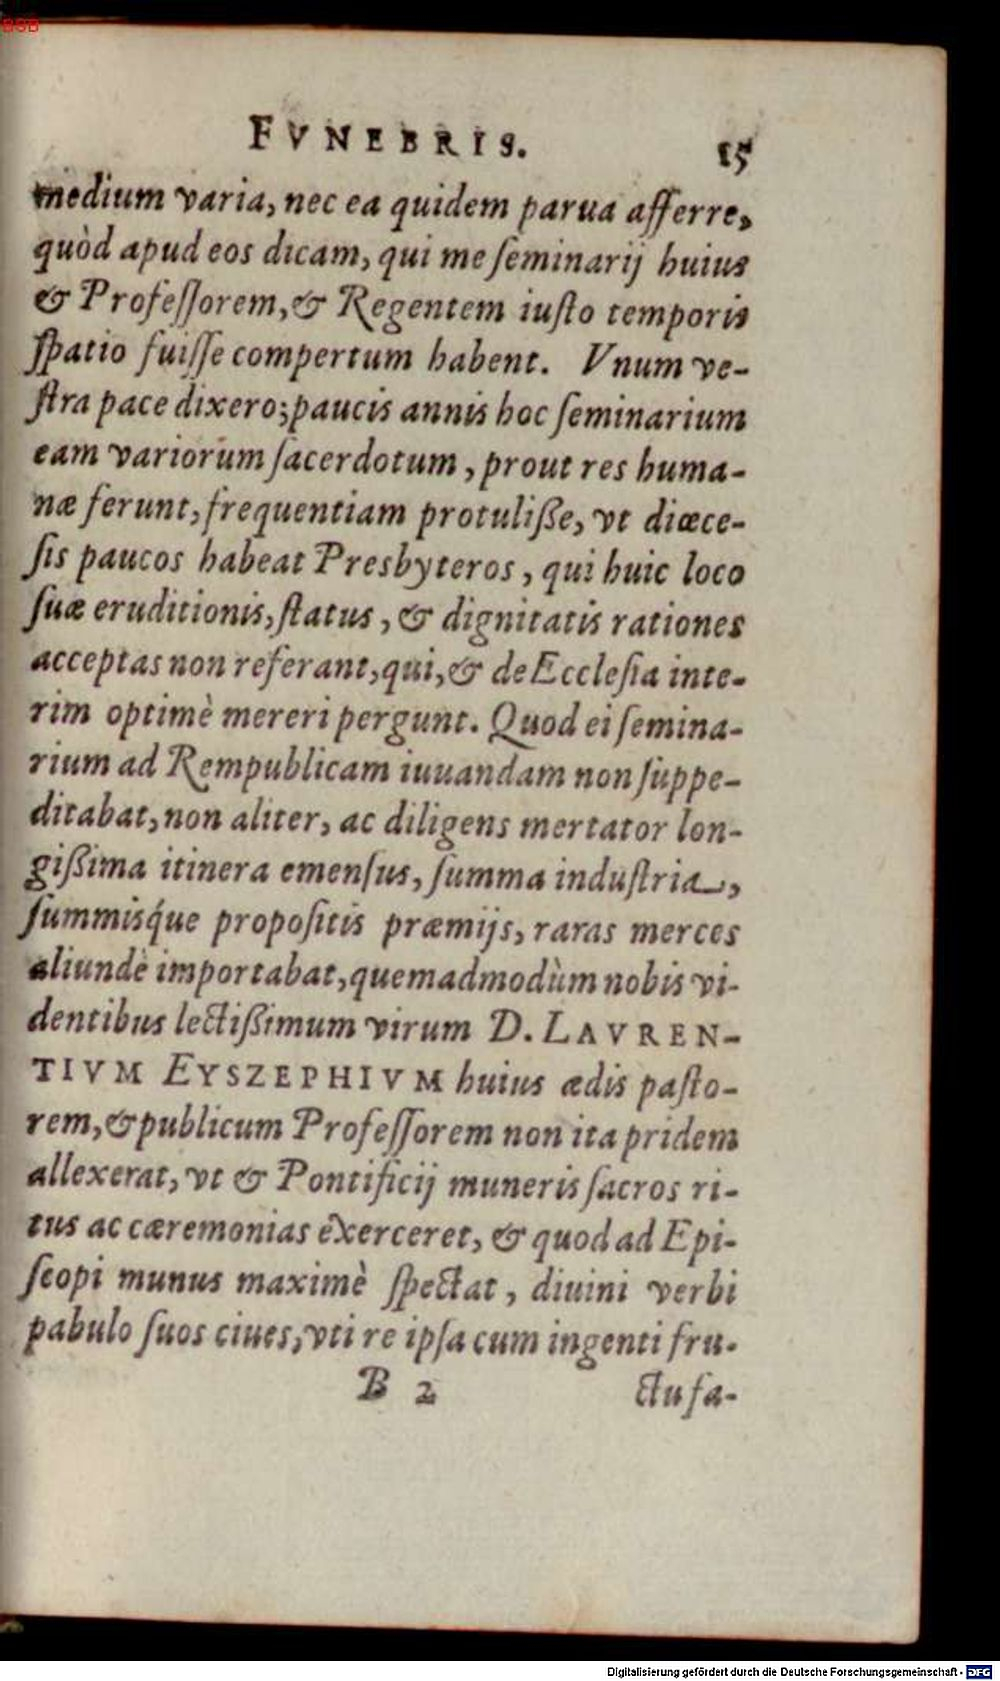 BSB
FVNEBRIS. 15
medium varia, nec ea quidem parua afferre,
quòd apud eos dicam, qui me ſeminarij huius
& Profeſſorem, & Regentem iuſto temporis
ſpatio fuiſſe compertum habent. Vnum ve-
ſtra pace dixero; paucis annis hoc ſeminarium
eam variorum ſacerdotum, prout res huma-
næ ferunt, frequentiam protuliße, vt diœce-
ſis paucos habeat Presbyteros, qui huic loco
ſuæ eruditionis, ſtatus, & dignitatis rationes
acceptas non referant, qui, & de Eccleſia inte-
rim optimè mereri pergunt. Quod ei ſemina-
rium ad Rempublicam iuuandam non ſuppe-
ditabat, non aliter, ac diligens mertator lon-
gißima itinera emenſus, ſumma induſtria,
ſummisq́ue propoſitis præmijs, raras merces
aliundè importabat, quemadmodùm nobis vi-
dentibus lectißimum virum D. LAVREN-
TIVM EYSZEPHIVM huius ædis paſto-
rem, & publicum Profeſſorem non ita pridem
allexerat, vt & Pontificij muneris ſacros ri-
tus ac cæremonias exerceret, & quod ad Epi-
ſcopi munus maximè ſpectat, diuini verbi
pabulo ſuos ciues, vti re ipſa cum ingenti fru-
B 2 ctu fa-
Digitalisierung gefördert durch die Deutsche Forschungsgemeinschaft - DFG